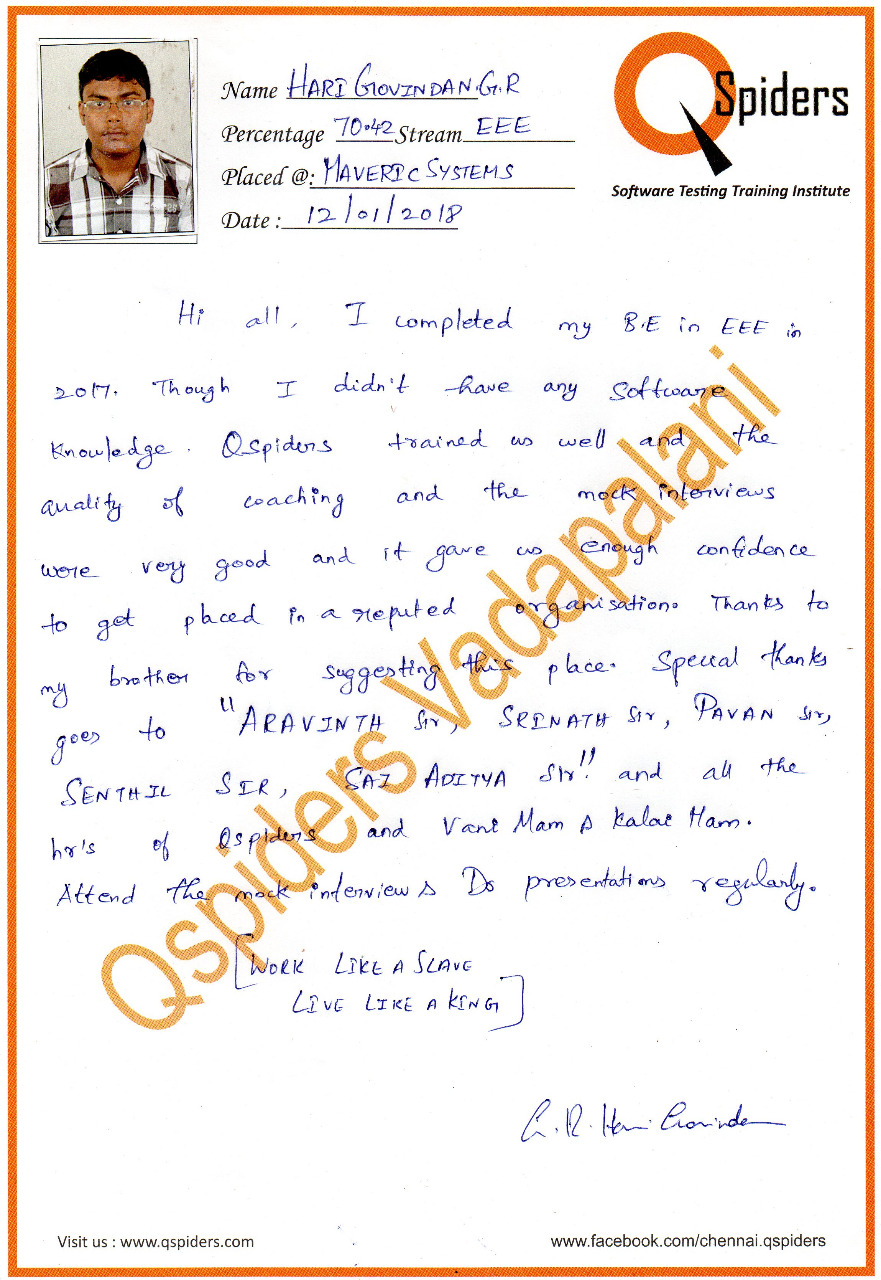 Name HARI GOVINDAN.G.R
Percentage 70.42 Stream EEE
Placed @: MAVERIC SYSTEMS
Date : 12/01/2018
QSpiders
Software Testing Training Institute
Hi all, I completed my B.E in EEE in
2017. Though I didn't have any Software
knowledge. QSpiders trained us well and the
quality of coaching and the mock interviews
were very good and it gave us enough confidence
to get placed in a reputed organisation. Thanks to
my brother for suggesting this place. Special thanks
goes to "ARAVINTH Sir, SRINATH Sir, PAVAN Sir,
SENTHIL SIR, SAI ADITYA Sir!" and all the
hr's of Qspiders and Vani Mam & Kalai Mam.
Attend the mock interview & Do presentations regularly.
[WORK LIKE A SLAVE
LIVE LIKE A KING]
G.R. Hari Govindan
Qspiders Vadapalani
Visit us : www.qspiders.com
www.facebook.com/chennai.qspiders